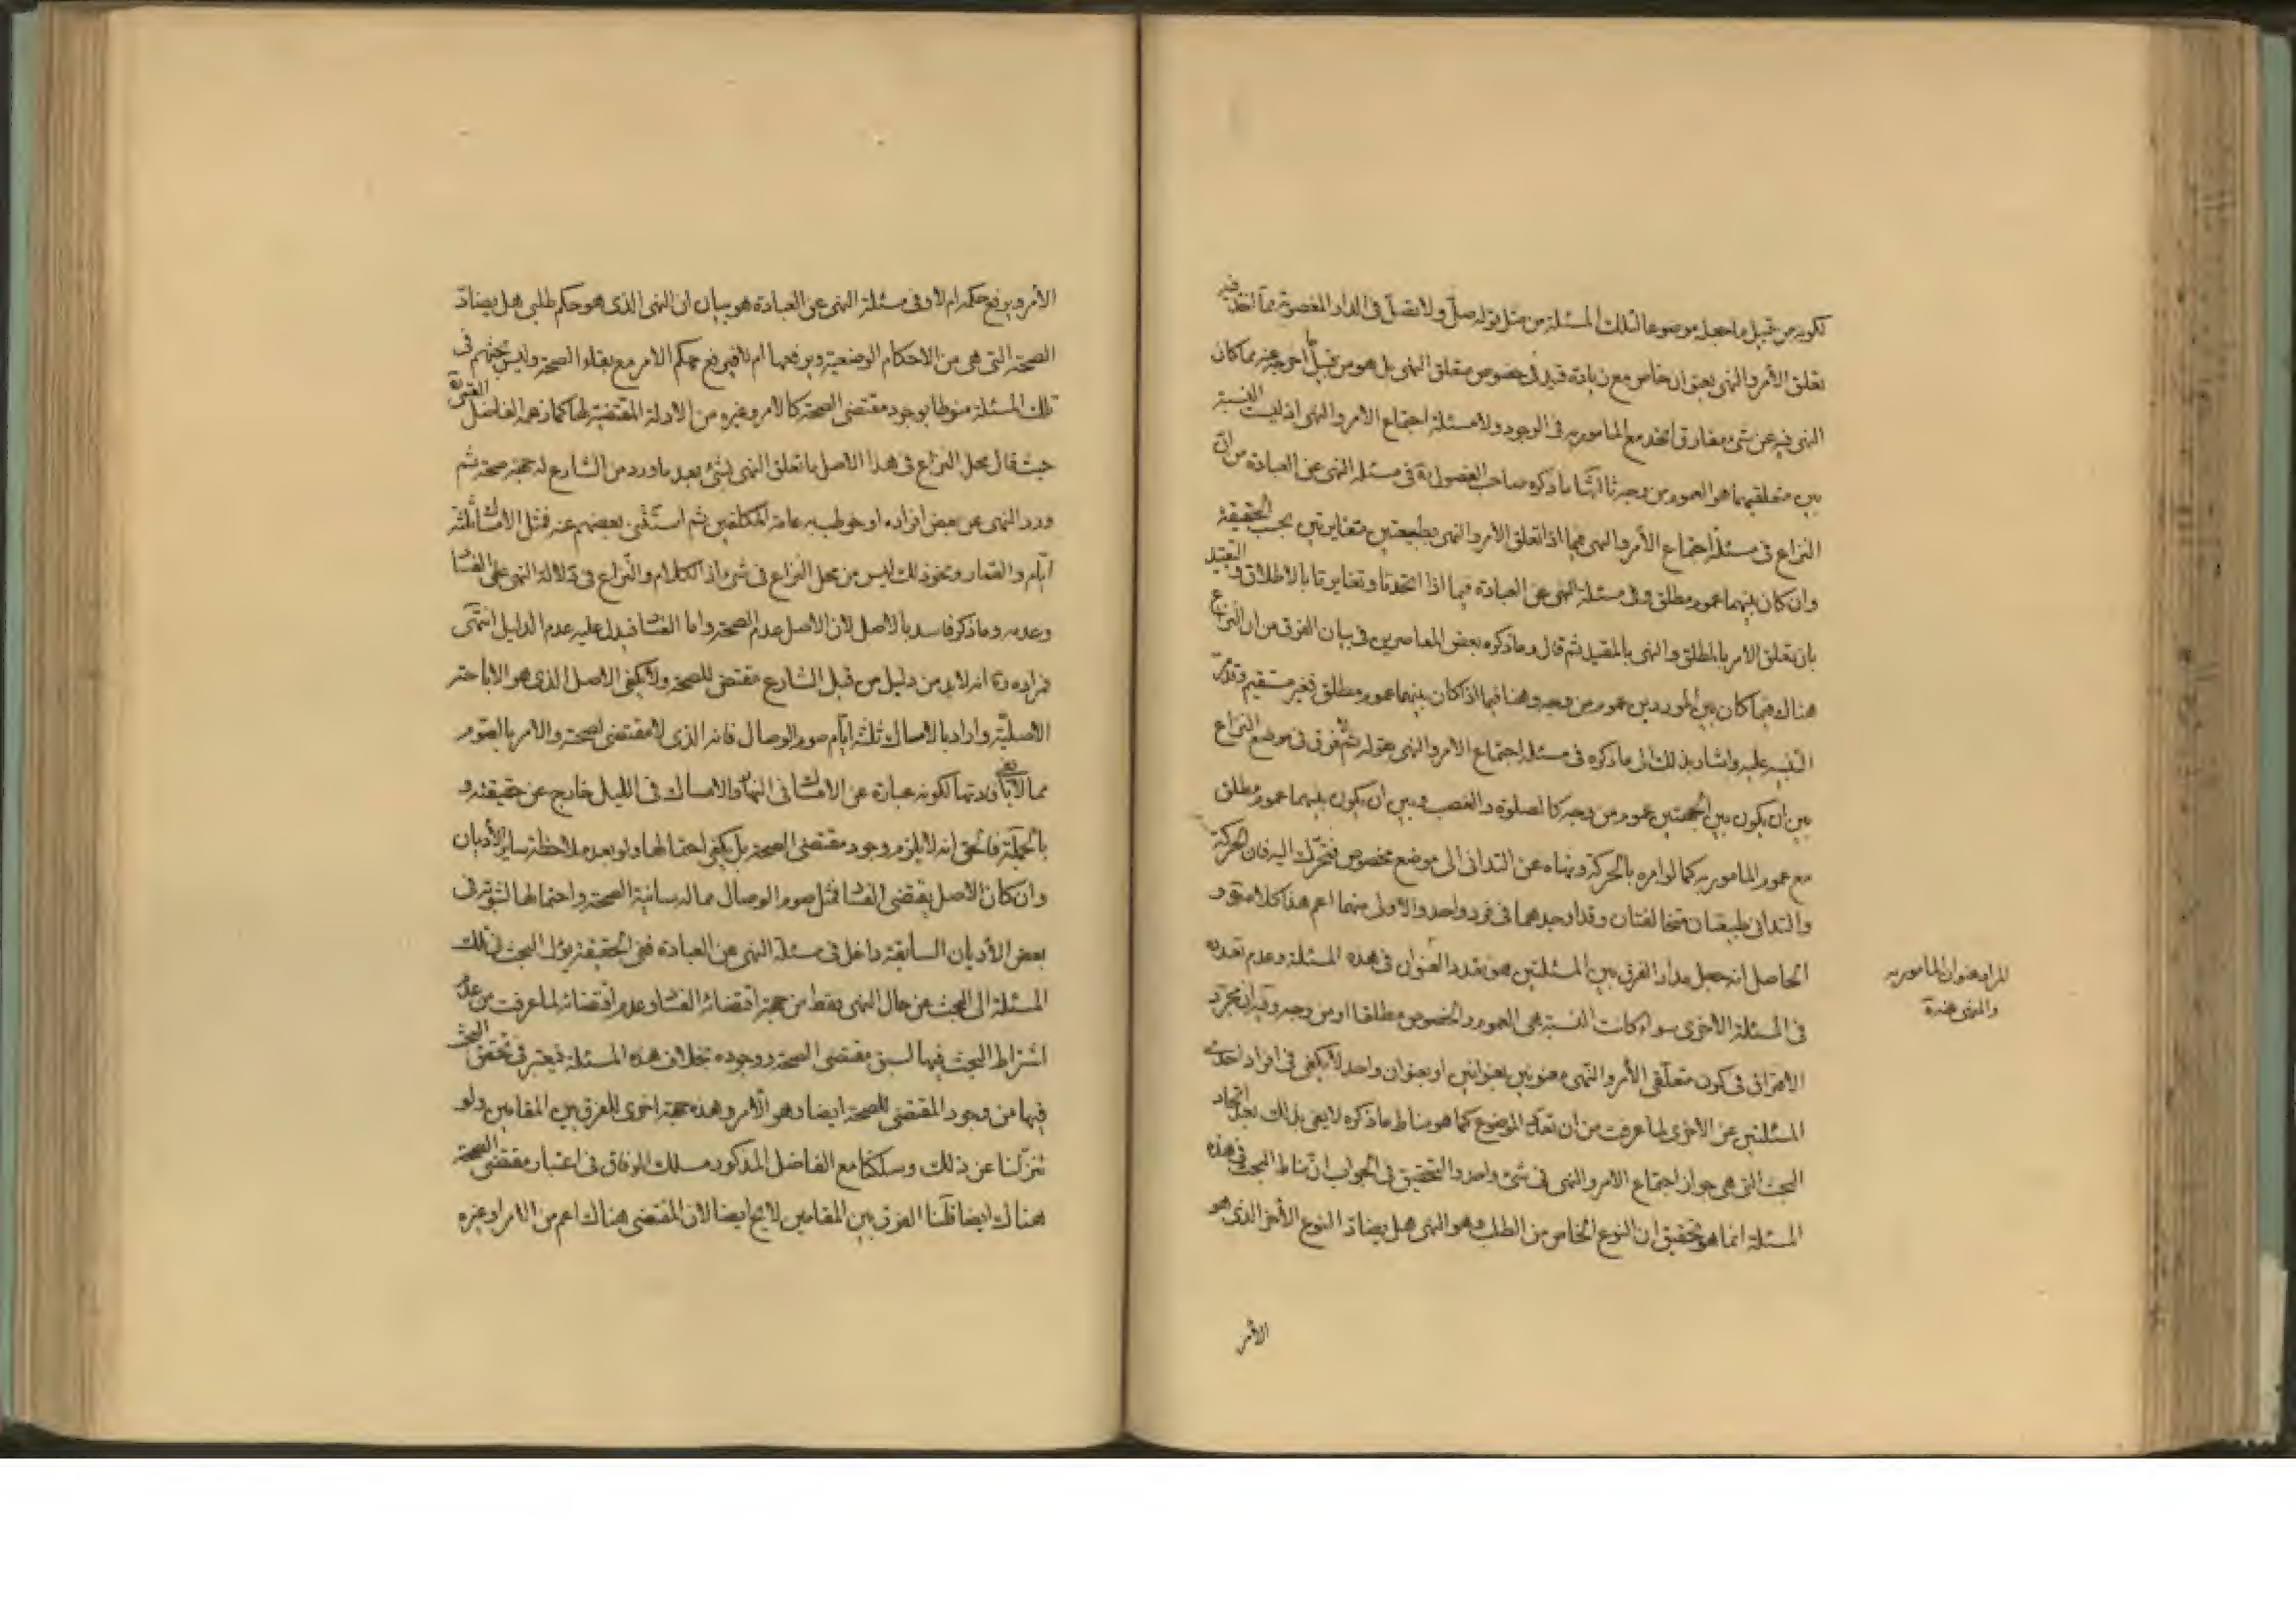 لكونه من قبيل ما جعل موضوعا لتلك المسئلة من مثل قوله صلّ ولا تصلّ في الدار المغصوبة مما اتخذ فيه
تعلق الأمر والنهي بعنوان خاص مع زيادة قيد في خصوص متعلق النهي بل هو من قبيل ما خرجه عنه مما كان
النهي فيه عن شئ مفارق اتحد مع المامور به في الوجود ولا مسئلة اجتماع الامر والنهي اذ ليست النسبة
بين متعلقيهما هو العموم من وجه ثالثها ما ذكره صاحب الفصول ره في مسئلة النهي عن العبادة من ان
النزاع في مسئلة اجتماع الأمر والنهي فيما اذا تعلق الأمر والنهي بطبيعتين متغايرتين بحسب الحقيقة
وان كان بينهما عموم مطلق وفي مسئلة النهي عن العبادة فيما اذا اتحدتا وتغايرتا بالاطلاق والتقييد
بان تعلق الامر بالمطلق والنهي بالمقيد ثم قال وما ذكره بعض المعاصرين في بيان الفرق من ان النزاع
هناك فيما كان بين الموردين عموم من وجه وهنا فيما اذا كان بينهما عموم مطلق فغير مستقيم وقد مر
التنبيه عليه واشار بذلك الى ما ذكره في مسئلة اجتماع الامر والنهي بقوله ثم لا فرق في موضع النزاع
بين ان يكون بين الجهتين عموم من وجه كالصلوة والغصب وبين ان يكون بينهما عموم مطلق
مع عموم المامور به كما لو امره بالحركة ونهاه عن التداني الى موضع مخصوص فتحرك اليه فان الحركة
والتداني طبيعتان متخالفتان وقد اوجدهما في فرد واحد والاولى منهما اعم هذا كلامه و
الحاصل انه جعل مدار الفرق بين المسئلتين هو تعدد العنوان في هذه المسئلة وعدم تعدده
في المسئلة الاخرى سواء كانت النسبة هي العموم والخصوص مطلقا او من وجه وفيه ان مجرد
الافتراق في كون متعلقي الأمر والنهي معنونين بعنوانين او بعنوان واحد لا يكفي في افراد احدى
المسئلتين عن الاخرى لما عرفت من ان تعدد الموضوع كما هو مناط ما ذكره لا يفي بذلك بعد اتحاد
البحث التي هي جواز اجتماع الامر والنهي في شئ واحد والتحقيق في الجواب ان مناط البحث في هذه
المسئلة انما هو تحقيق ان النوع الخاص من الطلب وهو النهي هل يضاد النوع الأخر الذي هو
المراد عنوان المامور به
والمنهي عنه
الأمر
الأمر ويرفع حكمه ام لا وفي مسئلة النهي عن العبادة هو بيان ان النهي الذي هو حكم طلبي هل يضادّ
الصحة التي هي من الاحكام الوضعية ويرفعها ام لا فيرفع حكم الامر مع بقاء الصحة وليس بحثهم في
تلك المسئلة منوطا بوجود مقتضى الصحة كالامر وغيره من الادلة المقتضية لها كما زعمه الفاضل القمي ره
حيث قال محل النزاع في هذا الاصل ما تعلق النهي بشئ بعد ما ورد من الشارع له جهة صحة ثم
ورد النهي عن بعض افراده او خوطب به عامة المكلفين ثم استثنى بعضهم عنه فمثل الامساك ثلثة
أيام والقمار ونحو ذلك ليس من محل النزاع في شئ اذ الكلام والنزاع في دلالة النهي على الفساد
وعدمه وما ذكر فاسد بالاصل لان الاصل عدم الصحة واما الفساد فيدل عليه عدم الدليل انتهى
فمراده ره انه لا بد من دليل من قبل الشارع مقتض للصحة ولا يكفي الاصل الذي هو الاباحة
الأصلية واراد بالامساك ثلثة أيام صوم الوصال فانه الذي لا مقتضى لصحته والامر بالصوم
مما لا يفي بافادتها لكونه عبارة عن الامساك في النهار والامساك في الليل خارج عن حقيقته و
بالجملة فالحق انه لا يلزم وجود مقتضى الصحة بل يكفي احتمالها ولو بعد ملاحظة ساير الأديان
وان كان الاصل يقتضي الفساد فمثل صوم الوصال مما له شانية الصحة واحتمالها لثبوته في
بعض الأديان السابقة داخل في مسئلة النهي عن العبادة ففي الحقيقة يؤل البحث في تلك
المسئلة الى البحث عن حال النهي فقط من جهة اقتضائه الفساد وعدم اقتضائه لما عرفت من عدم
اشتراط البحث فيها لسبق مقتضى الصحة ووجوده بخلاف هذه المسئلة فيعتبر في تحقق البحث
فيها من وجود المقتضي للصحة ايضا وهو الأمر وهذه جهة اخرى للفرق بين المقامين ولو
تنزلنا عن ذلك وسلكنا مع الفاضل المذكور مسلك الوفاق في اعتبار مقتضى الصحة
هناك ايضا قلنا الفرق بين المقامين لايح ايضا لان المقتضي هناك اعم من الامر او غيره